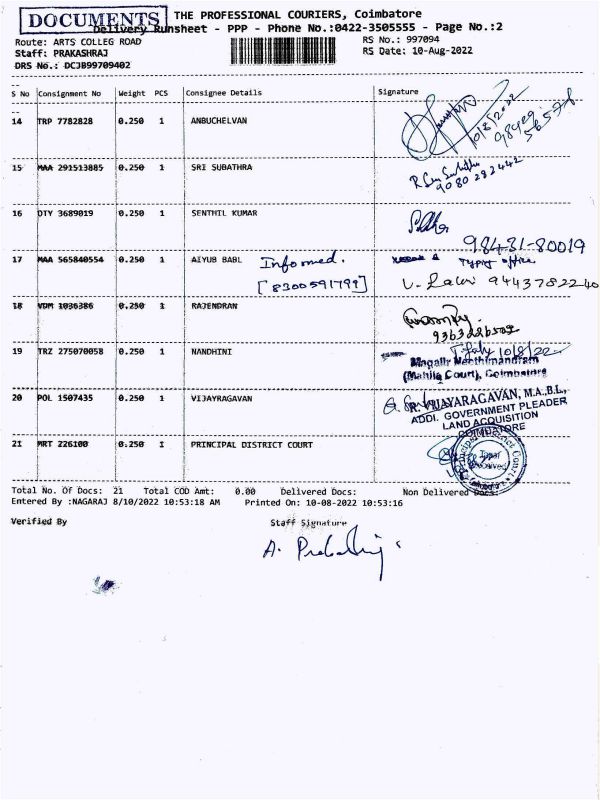 DOCUMENTS
THE PROFESSIONAL COURIERS, Coimbatore
Delivery Runsheet - PPP - Phone No.:0422-3505555 - Page No.:2
Route: ARTS COLLEG ROAD RS No.: 997094
Staff: PRAKASHRAJ RS Date: 10-Aug-2022
DRS No.: DCJB99709402
S No Consignment No Weight PCS Consignee Details Signature
14 TRP 7782828 0.250 1 ANBUCHELVAN
10/8/2022
15 MAA 291513885 0.250 1 SRI SUBATHRA
9080 282442
16 DTY 3689019 0.250 1 SENTHIL KUMAR
98431-80019
17 MAA 565840554 0.250 1 AIYUB BABL Informed. Typing office
[8300591799] 9443782240
18 VDM 1036386 0.250 1 RAJENDRAN
19 TRZ 275070058 0.250 1 NANDHINI 10/8/22
Magalir Neethimandram
(Mahila Court), Coimbatore
20 POL 1507435 0.250 1 VIJAYRAGAVAN
R. VIJAYARAGAVAN, M.A.,B.L.,
ADDI. GOVERNMENT PLEADER
LAND ACQUISITION
COIMBATORE
21 MRT 226100 0.250 1 PRINCIPAL DISTRICT COURT
Tapal
Received
Total No. Of Docs: 21 Total COD Amt: 0.00 Delivered Docs: Non Delivered Docs:
Entered By :NAGARAJ 8/10/2022 10:53:18 AM Printed On: 10-08-2022 10:53:16
Verified By Staff Signature